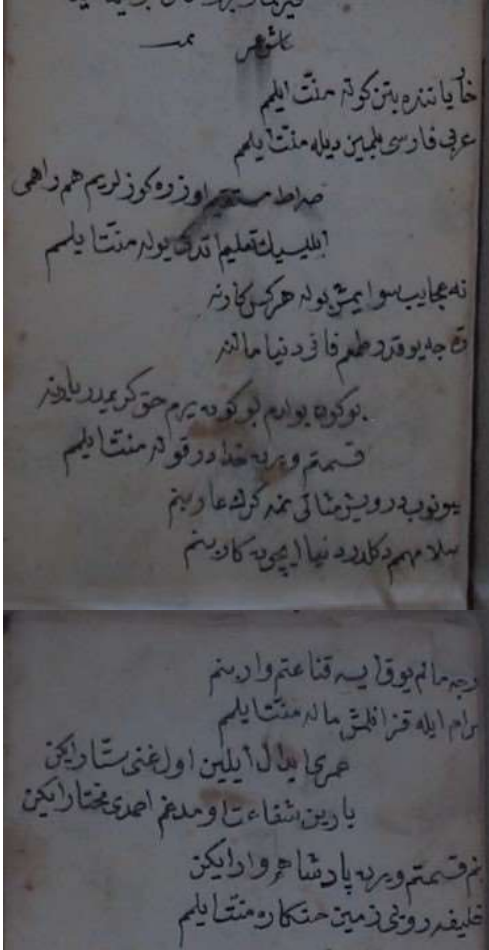 عاشق عمر
خدایا تندرست بتن کوله منت ایلمم
عربی فارسی بلمین دیله منت ایلمم
صراط مستقیم اوزره کوزلریم هم راهمی
ابلیسیك تعلیم اتدکی یوله منت ایلمم
نه عجایب سوایمش بوله هرکس کارنه
ذرجه یوقدر طمعم فانی دنیا مالنه
بوکون بوارم بوکونه یرم حق کریمدر یارنه
قسمتم ویره خدا در قوله منت ایلمم
یونوب درویش مثالی نمه کرك عار بنم
سلامهم دکلدر دنیا ایچره کار بنم
درجه مالم یوق ایسه قناعتم وار بنم
حرام ایله قزانلمش ماله منت ایلمم
عمری ابدال ایلین اول غنی ستار ایکن
یارین شفاعت اومدغم احمدی مختار ایکن
بنم قسمتم ویره پادشاهم وار ایکن
خلیفه روی زمین حنکاره منت ایلمم